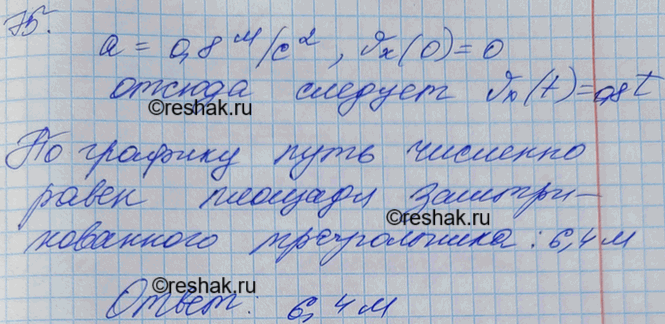 75.
a = 0,8 м/с², υx(0) = 0
отсюда следует υx(t) = 0,8t
©reshak.ru
По графику путь численно
равен площади заштри-
©reshak.ru
хованного треугольника: 6,4 м
©reshak.ru
Ответ: 6,4 м